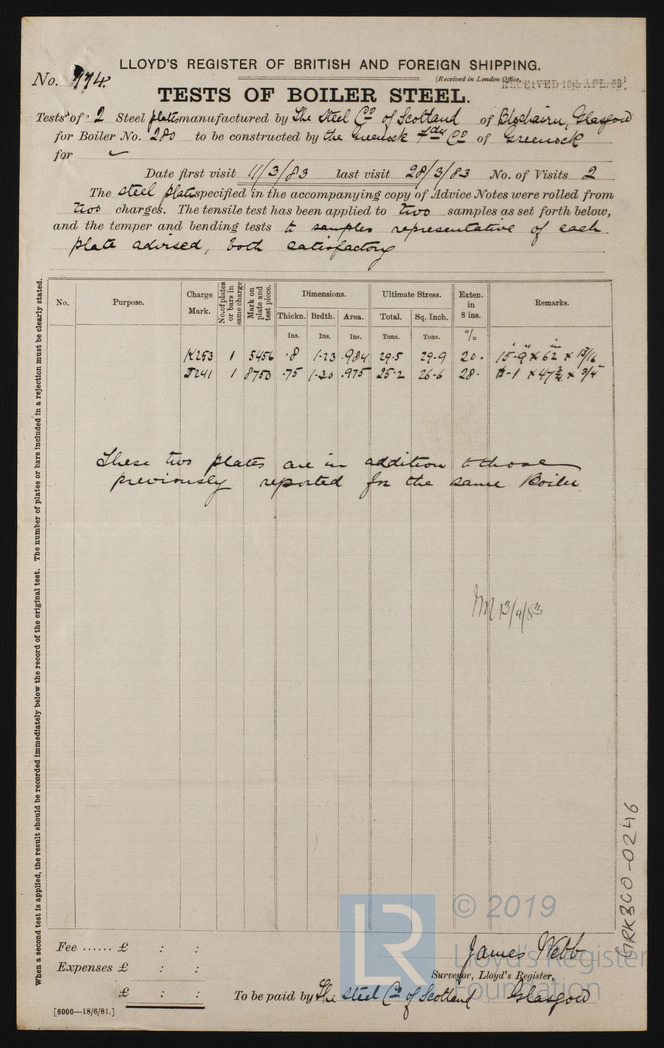 LLOYD'S REGISTER OF BRITISH AND FOREIGN SHIPPING.
No. 774. (Received in London Office, RECEIVED 10th APL. 83)
TESTS OF BOILER STEEL.
Tests of 2 Steel plates manufactured by The Steel Co of Scotland of Blochairn, Glasgow
for Boiler No. 280 to be constructed by the Greenock Fdry Co of Greenock
for
Date first visit 11/3/83 last visit 28/3/83 No. of Visits 2
The steel plates specified in the accompanying copy of Advice Notes were rolled from
two charges. The tensile test has been applied to two samples as set forth below,
and the temper and bending tests to samples representative of each
plate advised, both satisfactory
No. Purpose. Charge Mark. No. of plates or bars in same charge Mark on plate and test piece. Dimensions. Ultimate Stress. Exten. in 8 ins. Remarks.
Thickn. Brdth. Area. Total. Sq. Inch.
Ins. Ins. Ins. Tons. Tons. %
K253 1 5456 .8 1.23 .984 29.5 29.9 20. 15-9 x 62 x 13/16
J241 1 8750 .75 1.30 .975 25.2 26.6 28. x 47 3/4 x 3/4
These two plates are in addition to those
previously reported for the same Boiler
13/4/83
When a second test is applied, the result should be recorded immediately below the record of the original test. The number of plates or bars included in a rejection must be clearly stated.
GRK360-0246
© 2019
Lloyd's Register
Foundation
LR
Fee ...... £ : :
James Webb
Expenses £ : :
Surveyor, Lloyd's Register,
£ : : To be paid by The Steel Co of Scotland Glasgow
[6000—18/6/81.]